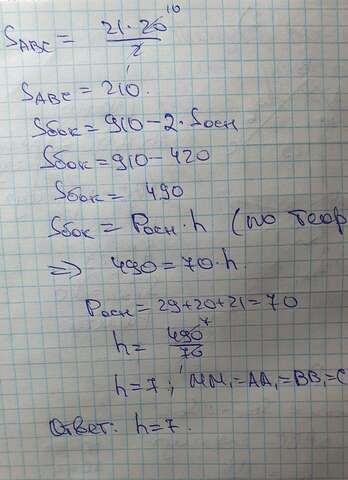 S_ABC = 21·20 10 / 2
S_ABC = 210.
Sбок = 910 - 2·Sосн
Sбок = 910 - 420
Sбок = 490
Sбок = Pосн·h (по теор
=> 490 = 70·h.
Pосн = 29+20+21 = 70
h = 490 7 / 70
h = 7; MM₁=AA₁=BB₁=C
Ответ: h = 7.